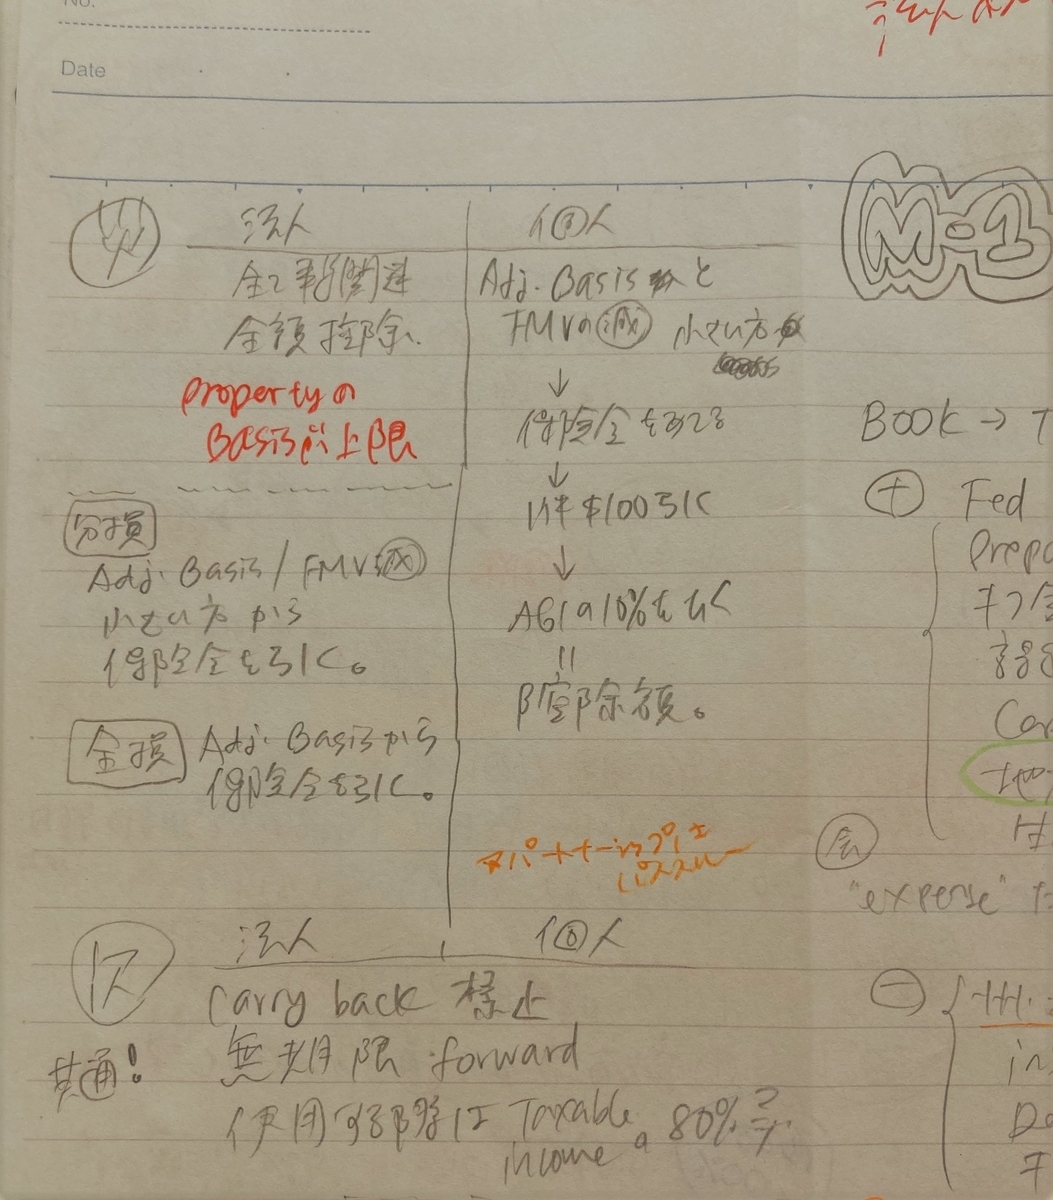 No.
Date
法人
個人
全て事務関連
全額控除
Propertyの
Basisが上限
分損
Adj. Basis / FMV減
小さい方から
保険金を引く。
全損
Adj. Basisから
保険金を引く。
Adj. Basis と
FMVの減 小さい方
↓
保険金を引く
↓
1件$100引く
↓
AGIの10%をひく
=
控除額。
★パートナーシップは
パススルー
法人
個人
共通!
Carry back 禁止
無期限 forward
使用する際は Taxable
income の 80%まで
M-1
BOOK → T
+ Fed
Prepa
Car
会
"expense"
-
in